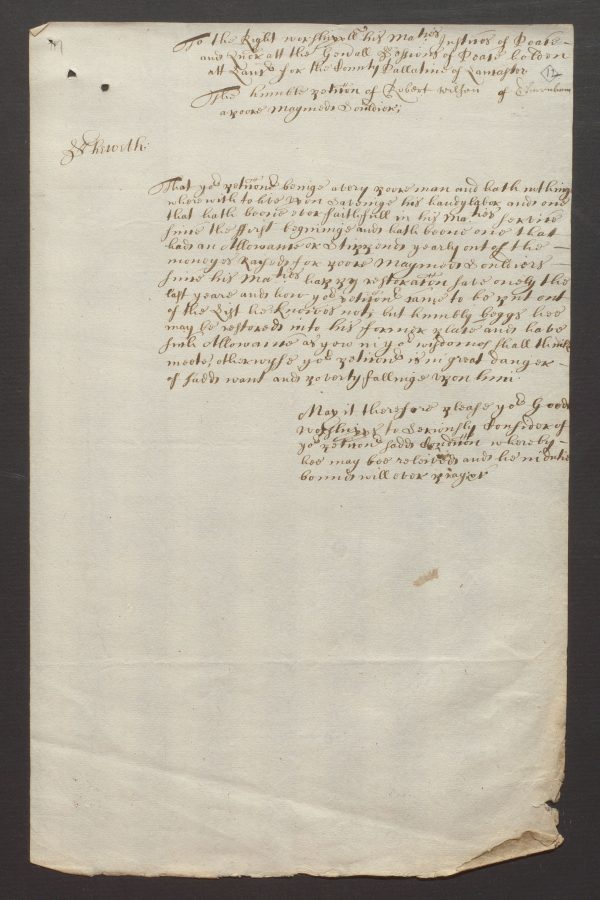 To the Right worshipll his Maties Justices of Peace
and Quor att the Gen'all Sessions of Peace holden
att Lancr for the County Pallatine of Lancaster
The humble peticon of Robert Wilson of
a poore Maymed Souldier;
Sheweth:
That yor peticonr beinge a very poore man and hath nothing
wherewith to live upon saveinge his handy labor and one
that hath beene ever faithfull in his Maties service
since the first begininge and hath beene one that
had an Allowance or Stippend yearly out of the
moneyes Raysed for poore Maymed Souldiers
since his Maties happy restoracon save onely the
last yeare and how yor peticonr came to be put out
of the List he knowes not; but humbly beggs hee
may be restored into his former place and have
such Allowance as you in yor wisdomes shall thinke
meete, otherwyse yor peticonr is in great danger
of sadd want and poverty fallinge upon him.
May it therefore please yor Good
Worshipps to Seriously Consider of
yor peticonrs sadd Condicon whereby
hee may bee releived and he in dutie
bound will ever pray &c